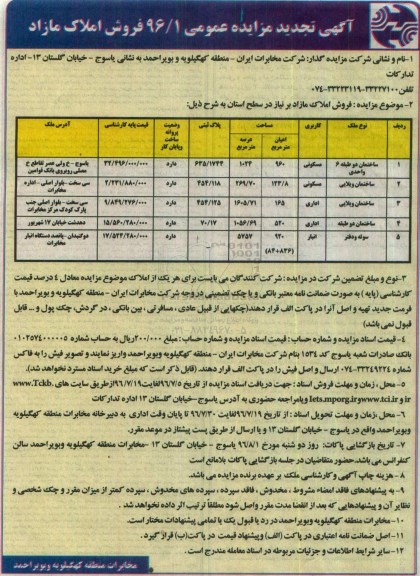 آگهی تجدید مزایده عمومی ۹۶/۱ فروش املاک مازاد
۱-نام و نشانی شرکت مزایده گذار: شرکت مخابرات ایران - منطقه کهگیلویه و بویراحمد به نشانی یاسوج - خیابان گلستان ۱۳- اداره
تدارکات
تلفن: ۳۳۲۲۷۱۰۰-۳۳۲۲۳۱۱۹-۰۷۴
۲-موضوع مزایده : فروش املاک مازاد بر نیاز در سطح استان به شرح ذیل:
ردیف نوع ملک کاربری مساحت پلاک ثبتی وضعیت پروانه ساخت وپایان کار قیمت پایه کارشناسی آدرس ملک
اعیان متر مربع عرصه متر مربع
۱ ساختمان دو طبقه ۶ واحدی مسکونی ۹۶۰ ۱۰۲۳ ۶۳۵/۱۷۴۴ دارد ۳۲/۴۹۶/۰۰۰/۰۰۰ یاسوج - خ ولی عصر تقاطع خ مصلی روبروی بانک قوامین
۲ ساختمان ویلایی مسکونی ۱۲۳/۸ ۲۶۹/۷۰ ۴۵۴/۱۱۸ دارد ۲/۲۳۱/۸۸۰/۰۰۰ سی سخت - بلوار اصلی - اداره مخابرات
۳ ساختمان ویلایی اداری ۱۶۵ ۱۶۰۵/۷۱ ۴۵۴/۱۲۵ دارد ۹/۸۴۹/۲۷۶/۰۰۰ سی سخت - بلوار اصلی جنب پارک کودک مرکز مخابرات
۴ ساختمان دو طبقه اداری ۵۲۰ ۱۰۵۶/۶۹ ۷۰/۱۷ دارد ۱۵/۵۶۰/۲۸۰/۰۰۰ دهدشت خیابان ۱۷ شهریور
۵ سوله و دفتر انبار ۹۲۰ (۸۳۶+۸۴) ۵۷۵۷ دارد ۱۷/۵۲۴/۲۸۰/۰۰۰ دوگنبدان - پانصد دستگاه انبار مخابرات
۳-نوع و مبلغ تضمین شرکت در مزایده : شرکت کنندگان می بایست برای هر یک از املاک موضوع مزایده معادل ۴ درصد قیمت
کارشناسی (پایه ) به صورت ضمانت نامه معتبر بانکی و یا چک تضمینی در وجه شرکت مخابرات ایران - منطقه کهگیلویه و بویراحمد با
فرمت جدید تهیه و اصل آنرا در پاکت الف قرار دهند.(چکهایی از قبیل عادی ، مسافرتی ، بین بانکی ، در گردش، چک پول و ... قابل
قبول نمی باشد)
۴-قیمت اسناد مزایده و شماره حساب : قیمت اسناد مزایده و شماره حساب : مبلغ ۲۰۰/۰۰۰ریال به حساب شماره ۰۱۰۲۵۷۴۰۰۰۰۰۵
بانک صادرات شعبه یاسوج کد ۱۵۳۴ بنام شرکت مخابرات ایران - منطقه کهگیلویه وبویراحمد واریز نمایند و تصویر فیش را به فاکس
شماره ۳۳۲۴۹۲۲۴-۰۷۴ ارسال و اصل فیش را در پاکت الف قرار دهند. (قابل ذکر است که مبلغ خرید اسناد مسترد نخواهد شد).
۵-محل ، زمان و مهلت فروش اسناد : جهت دریافت اسناد مزایده از تاریخ ۹۶/۷/۵لغایت۹۶/۷/۱۹از طریق سایت های www.Tckb.
ir،www.tci.ir وIets.mporg.irویامراجعه حضوری به آدرس یاسوج -خیابان گلستان ۱۳ اداره تدارکات
۶-محل ،زمان و مهلت تحویل اسناد : از تاریخ ۹۶/۷/۱۹لغایت ۹۶/۷/۳۰ تا پایان وقت اداری به دبیرخانه مخابرات منطقه کهگیلویه
وبویراحمد واقع در یاسوج - خیابان گلستان ۱۳ و یا ارسال از طریق پست پیشتاز در موعد مقرر.
۷-تاریخ بازگشایی پاکات: روز دو شنبه مورخ ۹۶/۸/۱ یاسوج - خیابان گلستان ۱۳ -مخابرات منطقه کهگیلویه وبویراحمد سالن
کنفرانس می باشد. حضور متقاضیان در جلسه بازگشایی پاکات بلامانع است
۸-هزینه چاپ آگهی و کارشناسی ملک بر عهده برنده مزایده می باشد.
۹-به پیشنهادهای فاقد امضاء مشروط ، مخدوش ، فاقد سپرده ، سپرده های مخدوش ، سپرده کمتر از میزان مقرر و چک شخصی و
نظایر آن و پیشنهادهایی که بعد از انقضا مدت مقرر واصل شود مطلقا ترتیب اثر داده نخواهد شد.
۱۰-مخابرات منطقه کهگیلویه وبویراحمد در رد یا قبول یک یا تمامی پیشنهادات مختار است.
۱۱-اصل ضمانت نامه اعتباری در پاکت (الف) و پیشنهاد قیمت در پاکت(ب) قرار گیرد.
۱۲-سایر شرایط اطلاعات و جزئیات مربوطه در اسناد معامله مندرج است .
مخابرات منطقه کهگیلویه وبویراحمد